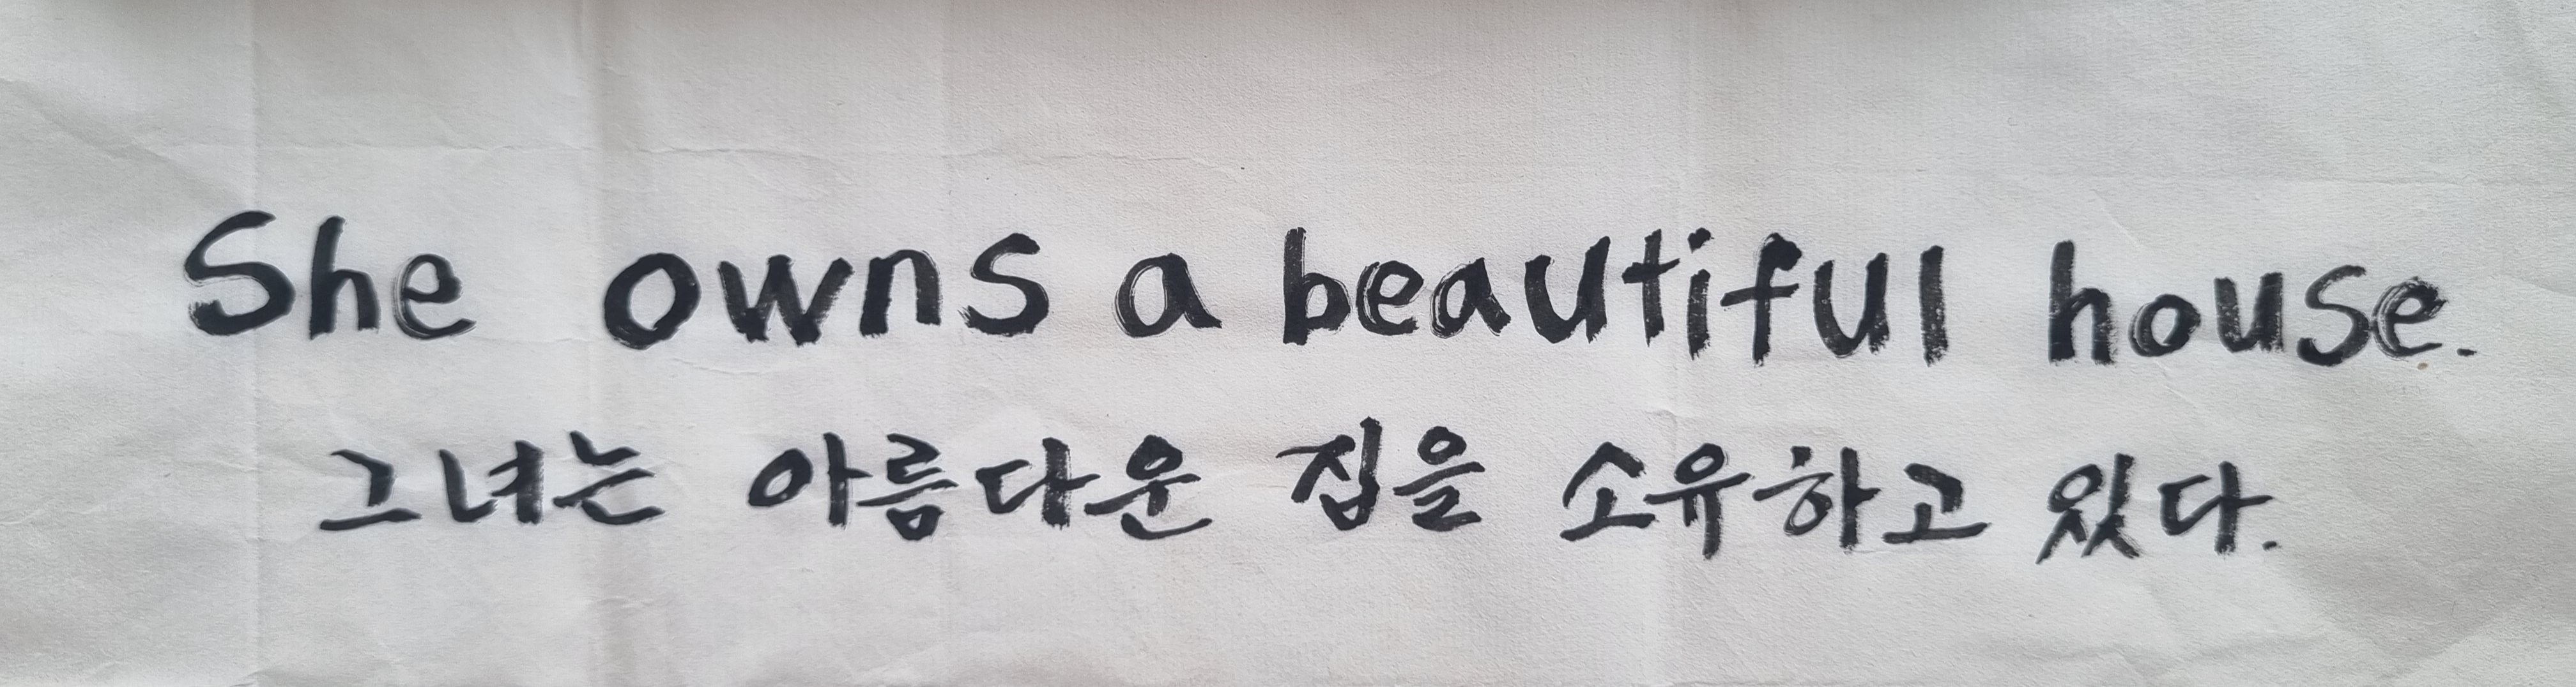 She owns a beautiful house.
그녀는 아름다운 집을 소유하고 있다.